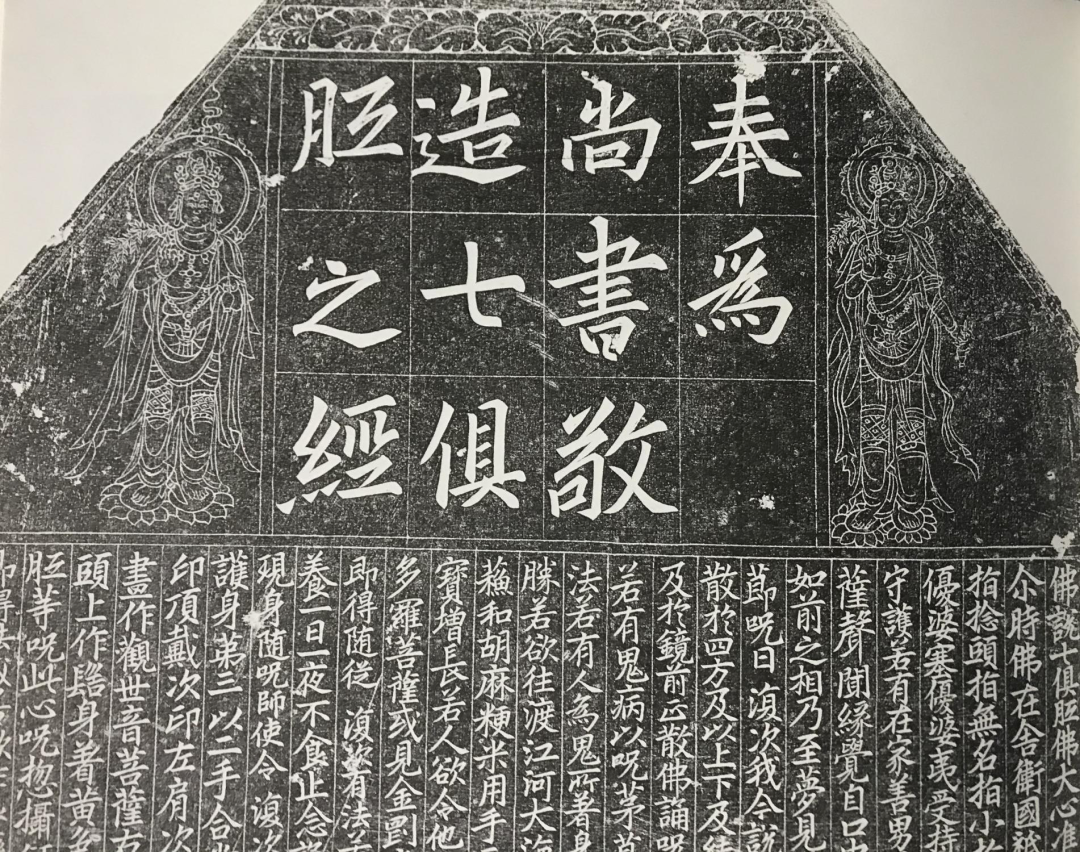 奉為
尚書敬
造七俱
胝之經
佛說七俱胝佛大心准
尒時佛在舍衛國祇
指捻頭指無名指小指
優婆塞優婆夷受持
守護若有在家善男
薩聲聞緣覺自口中
如前之相乃至夢見
莭呪曰 復次我今說
散於四方及以上下及結
及於鏡前正散佛誦呪
若有鬼病以呪茅草
法若有人為鬼所著身
勝若欲往渡江河大海
蘓和胡麻粳米用手
寳增長若人欲令他
多羅菩薩或見金剛
即得随從 復次有法若
養一日一夜不食止念
現身随呪師使令 復次
護身弟三以二手合
印頂戴次印左肩次
畫作觀世音菩薩右
頭上作髻身著黄色
胝等呪此心呪惣攝
即得